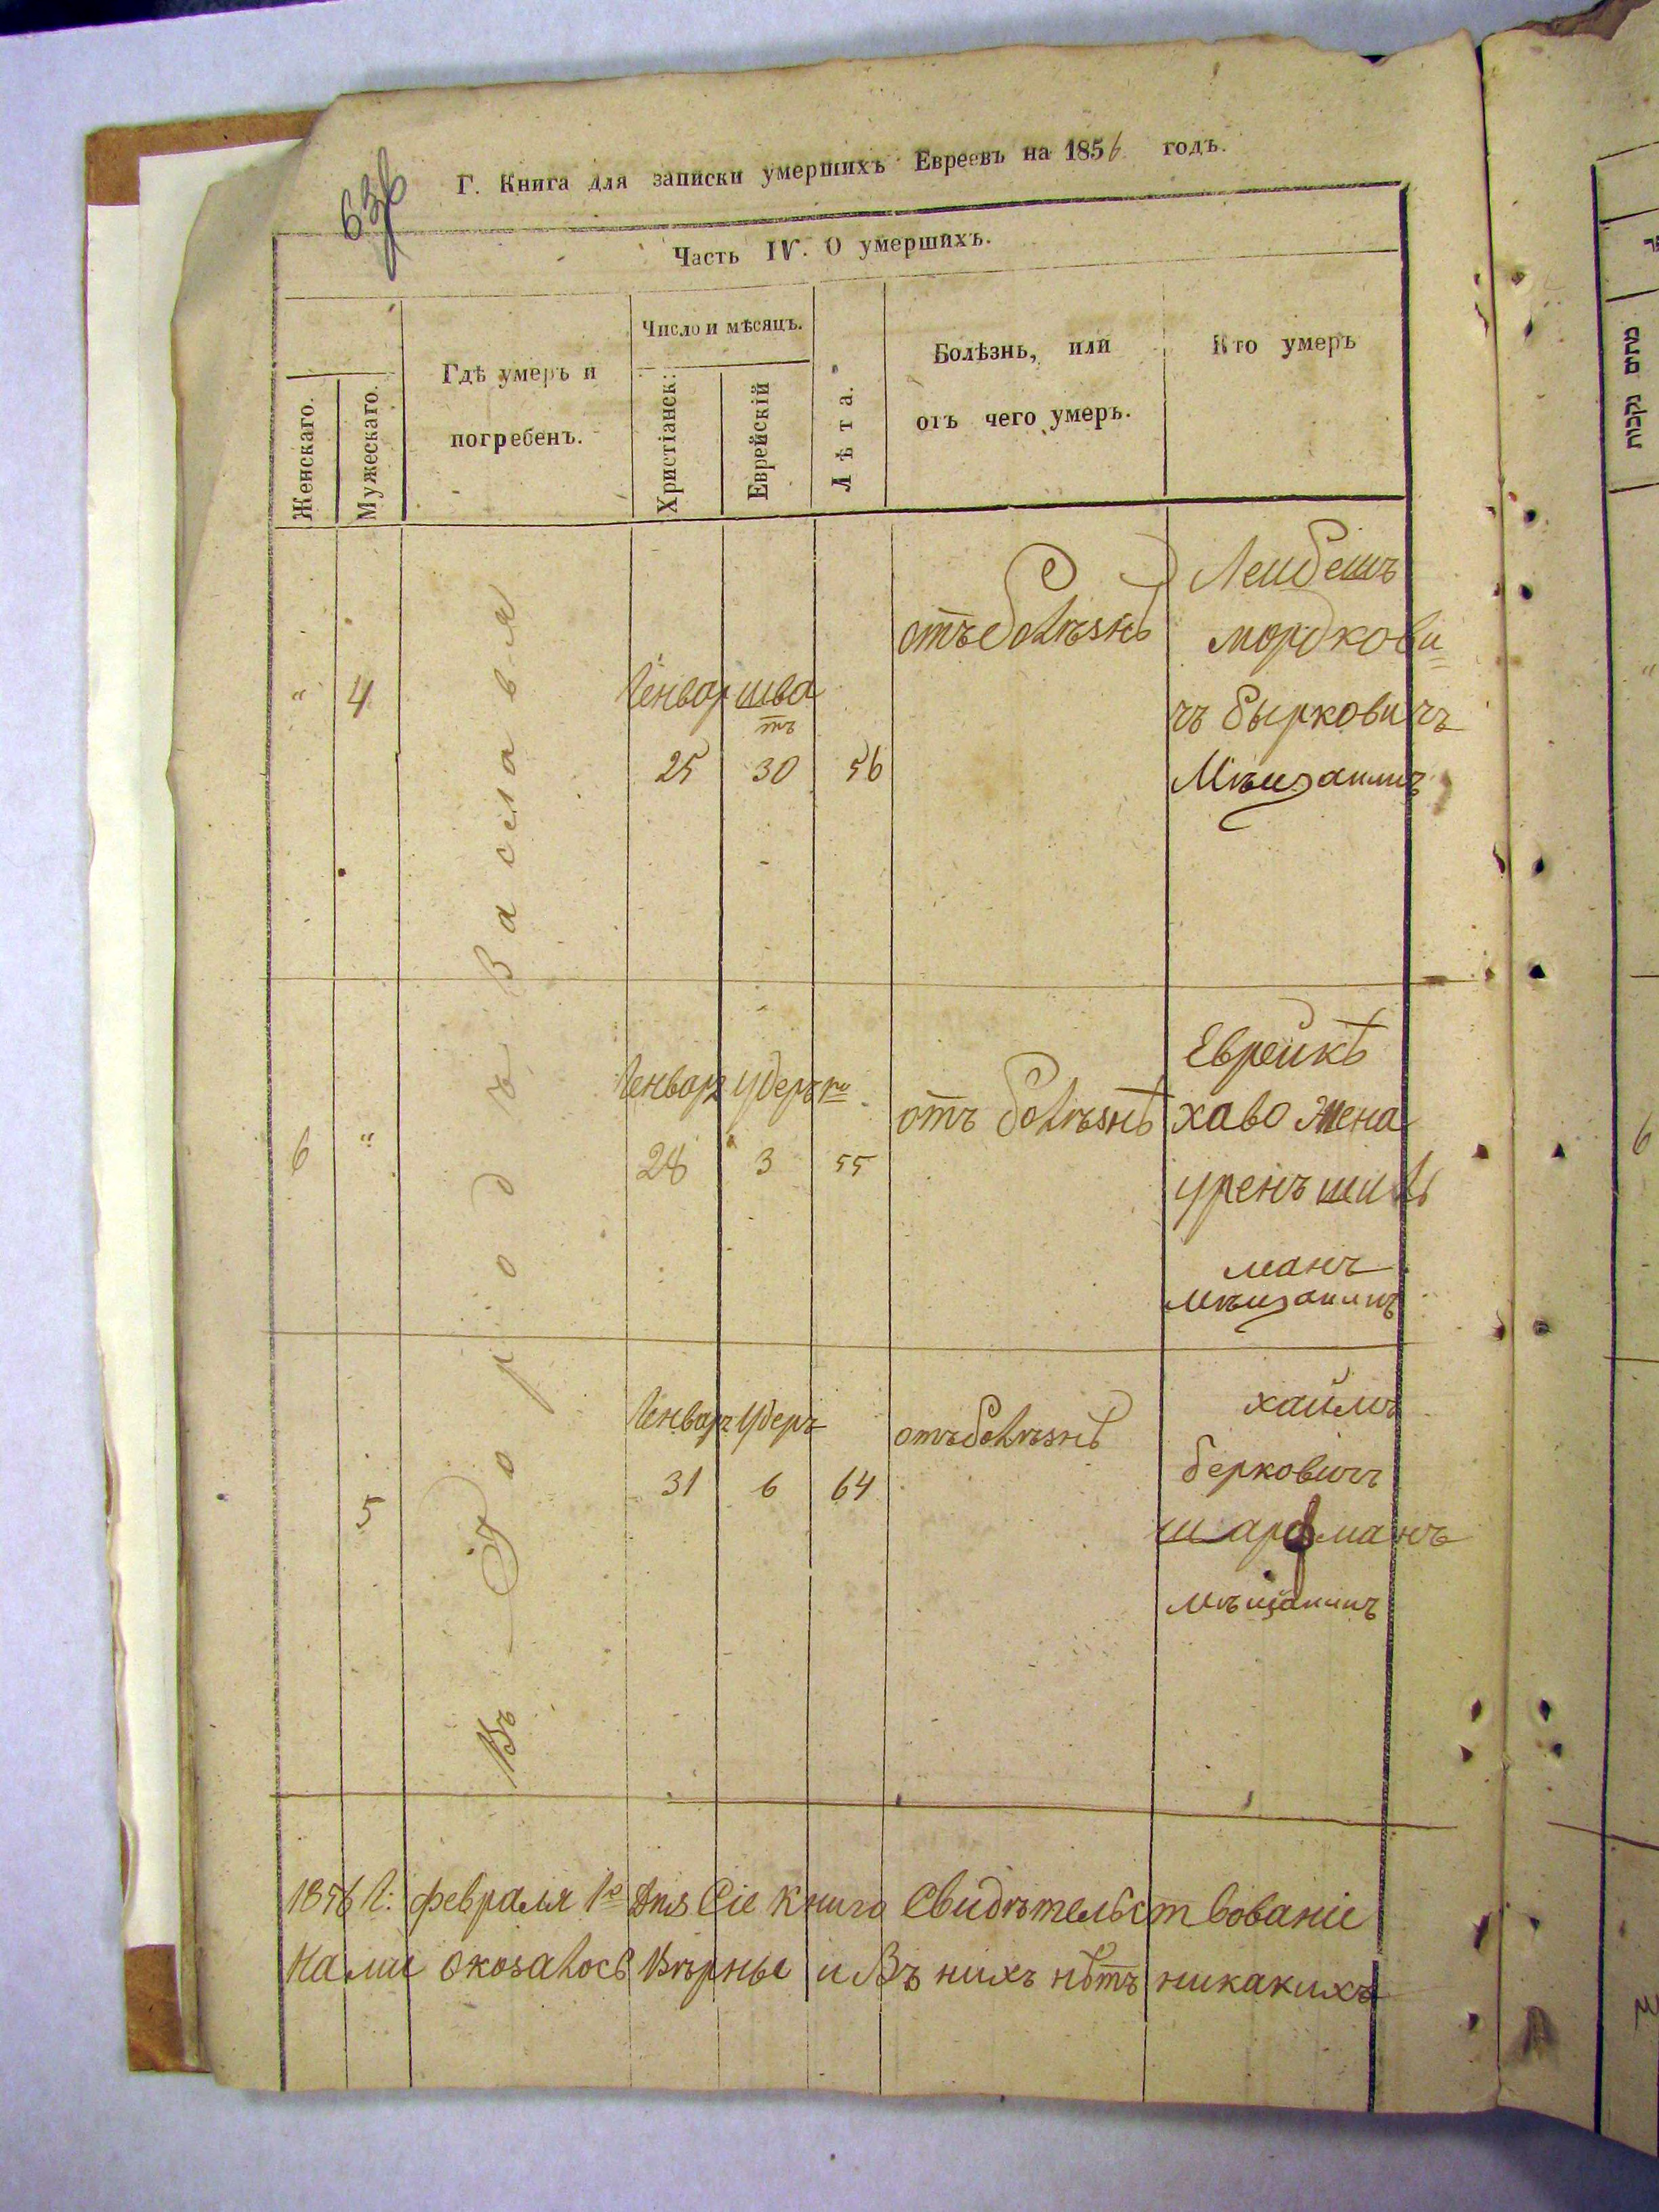 636
Г. Книга для записки умершихъ Евреевъ на 1856 годъ.
Часть IV. О умершихъ.
Женскаго.
Мужескаго.
Гдѣ умеръ и
погребенъ.
Число и мѣсяцъ.
Христіанск:
Еврейскій
Лѣта.
Болѣзнь, или
отъ чего умеръ.
Кто умеръ
Въ Городѣ Заславля
" 4
Генвар шва
тъ
25 30 56
отъ болѣзнѣ
Лейбешъ
мордкови=
чъ Бырковичъ
Мѣщанинъ
6 "
Генваръ Удеръ го
28 3 55
отъ болѣзнѣ
Еврейкѣ
хаво жена
манъ
мѣщанинъ
5
Генваръ Удеръ
31 6 64
отъ болѣзнѣ
хаимъ
берковичъ
шарфманъ
мѣщанинъ
1856 Г: февраля 1го дня Сіе книго Свидѣтельствованіе
Нами окозалось Вѣрные и Въ нихъ нѣтъ никакихъ
מתים נקבות
6